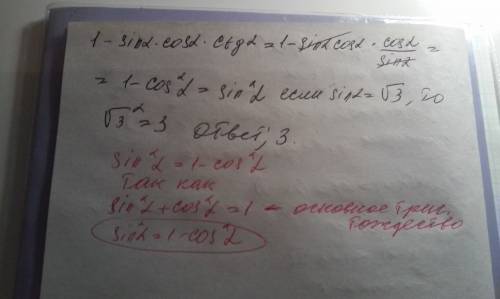 1 - sinα · cosα · ctgα = 1 - sinα cosα · cosα/sinα =
= 1 - cos²α = sin²α если sinα = √3, то
√3² = 3 Ответ; 3.
sin²α = 1 - cos²α
Так как
sin²α + cos²α = 1 - основное триг.
тождество
sin²α = 1 - cos²α